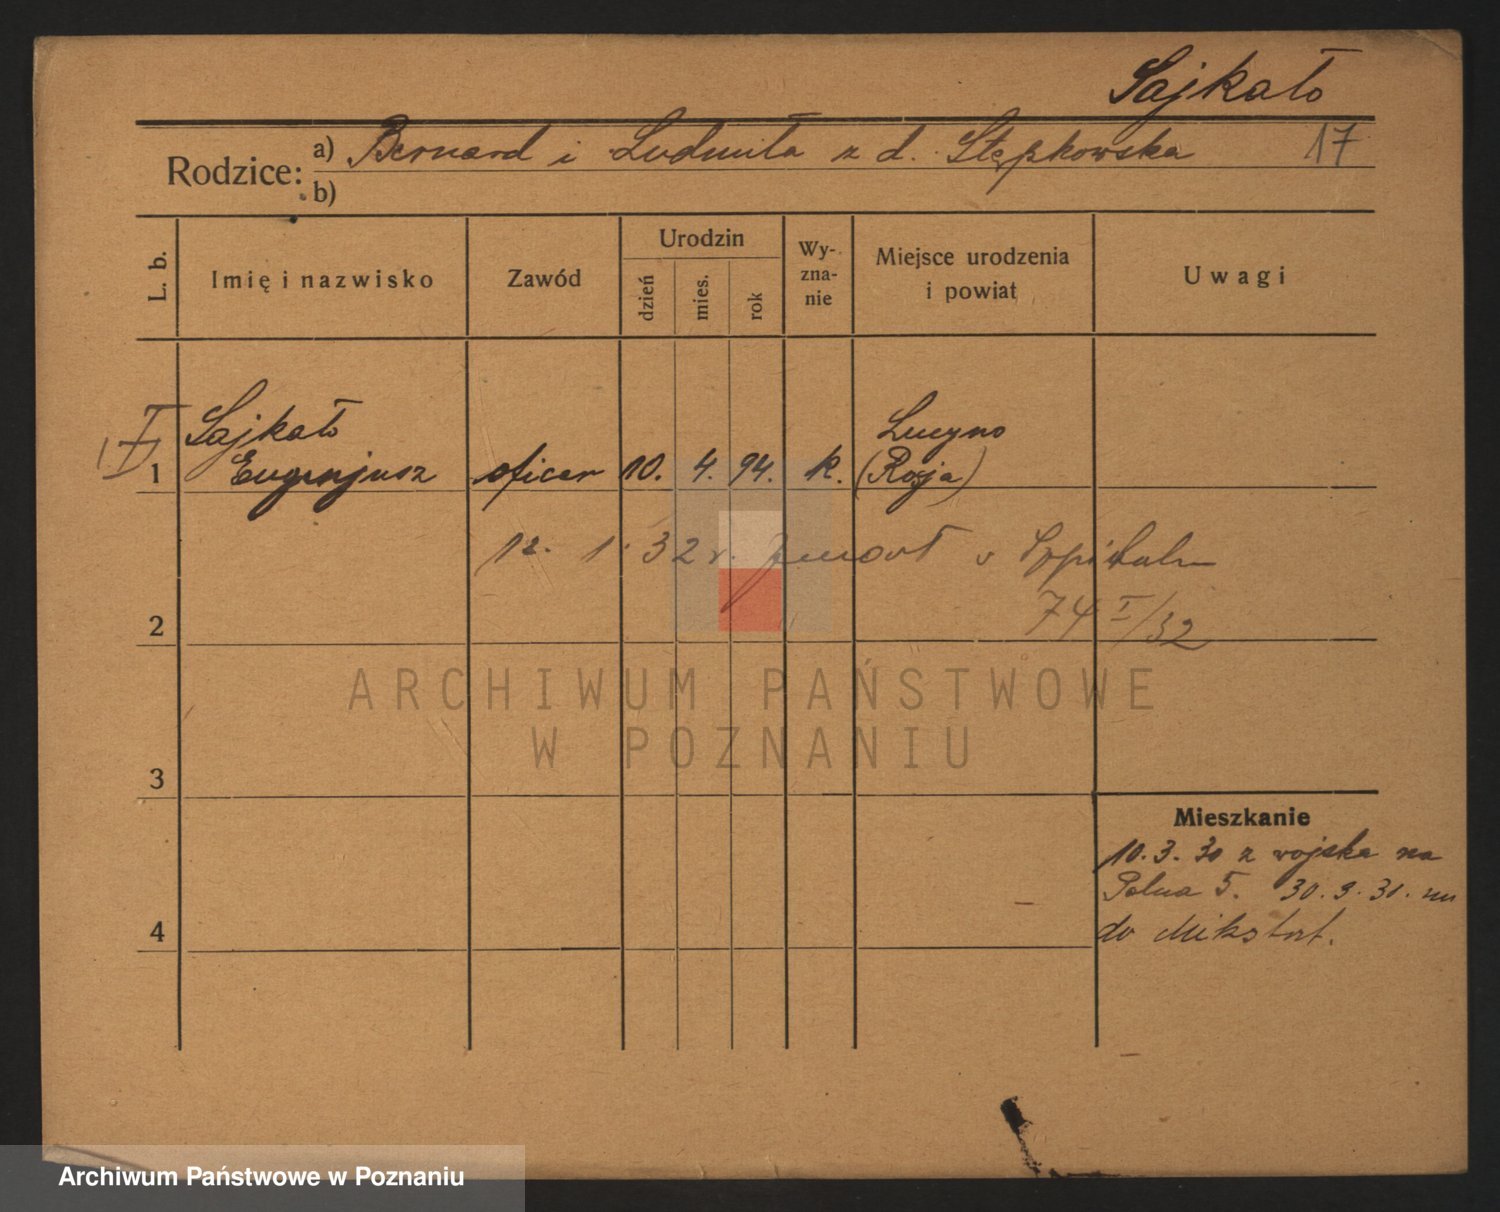 Sajkało
Rodzice: a) Bernard i Ludmiła z d. Stępkowska 17
b)
L. b. Imię i nazwisko Zawód Urodzin dzień mies. rok Wy-zna-nie Miejsce urodzenia i powiat Uwagi
Sajkało Lucyno
1 Eugenjusz oficer 10. 4. 94. k. (Rosja)
12. 1. 32 r. zmarł w Szpitalu
74 I/32
2
ARCHIWUM PAŃSTWOWE
W POZNANIU
3
Mieszkanie
10. 3. 30 z wojska na
Polna 5. 30. 9. 31.
4 do Mikstat.
Archiwum Państwowe w Poznaniu